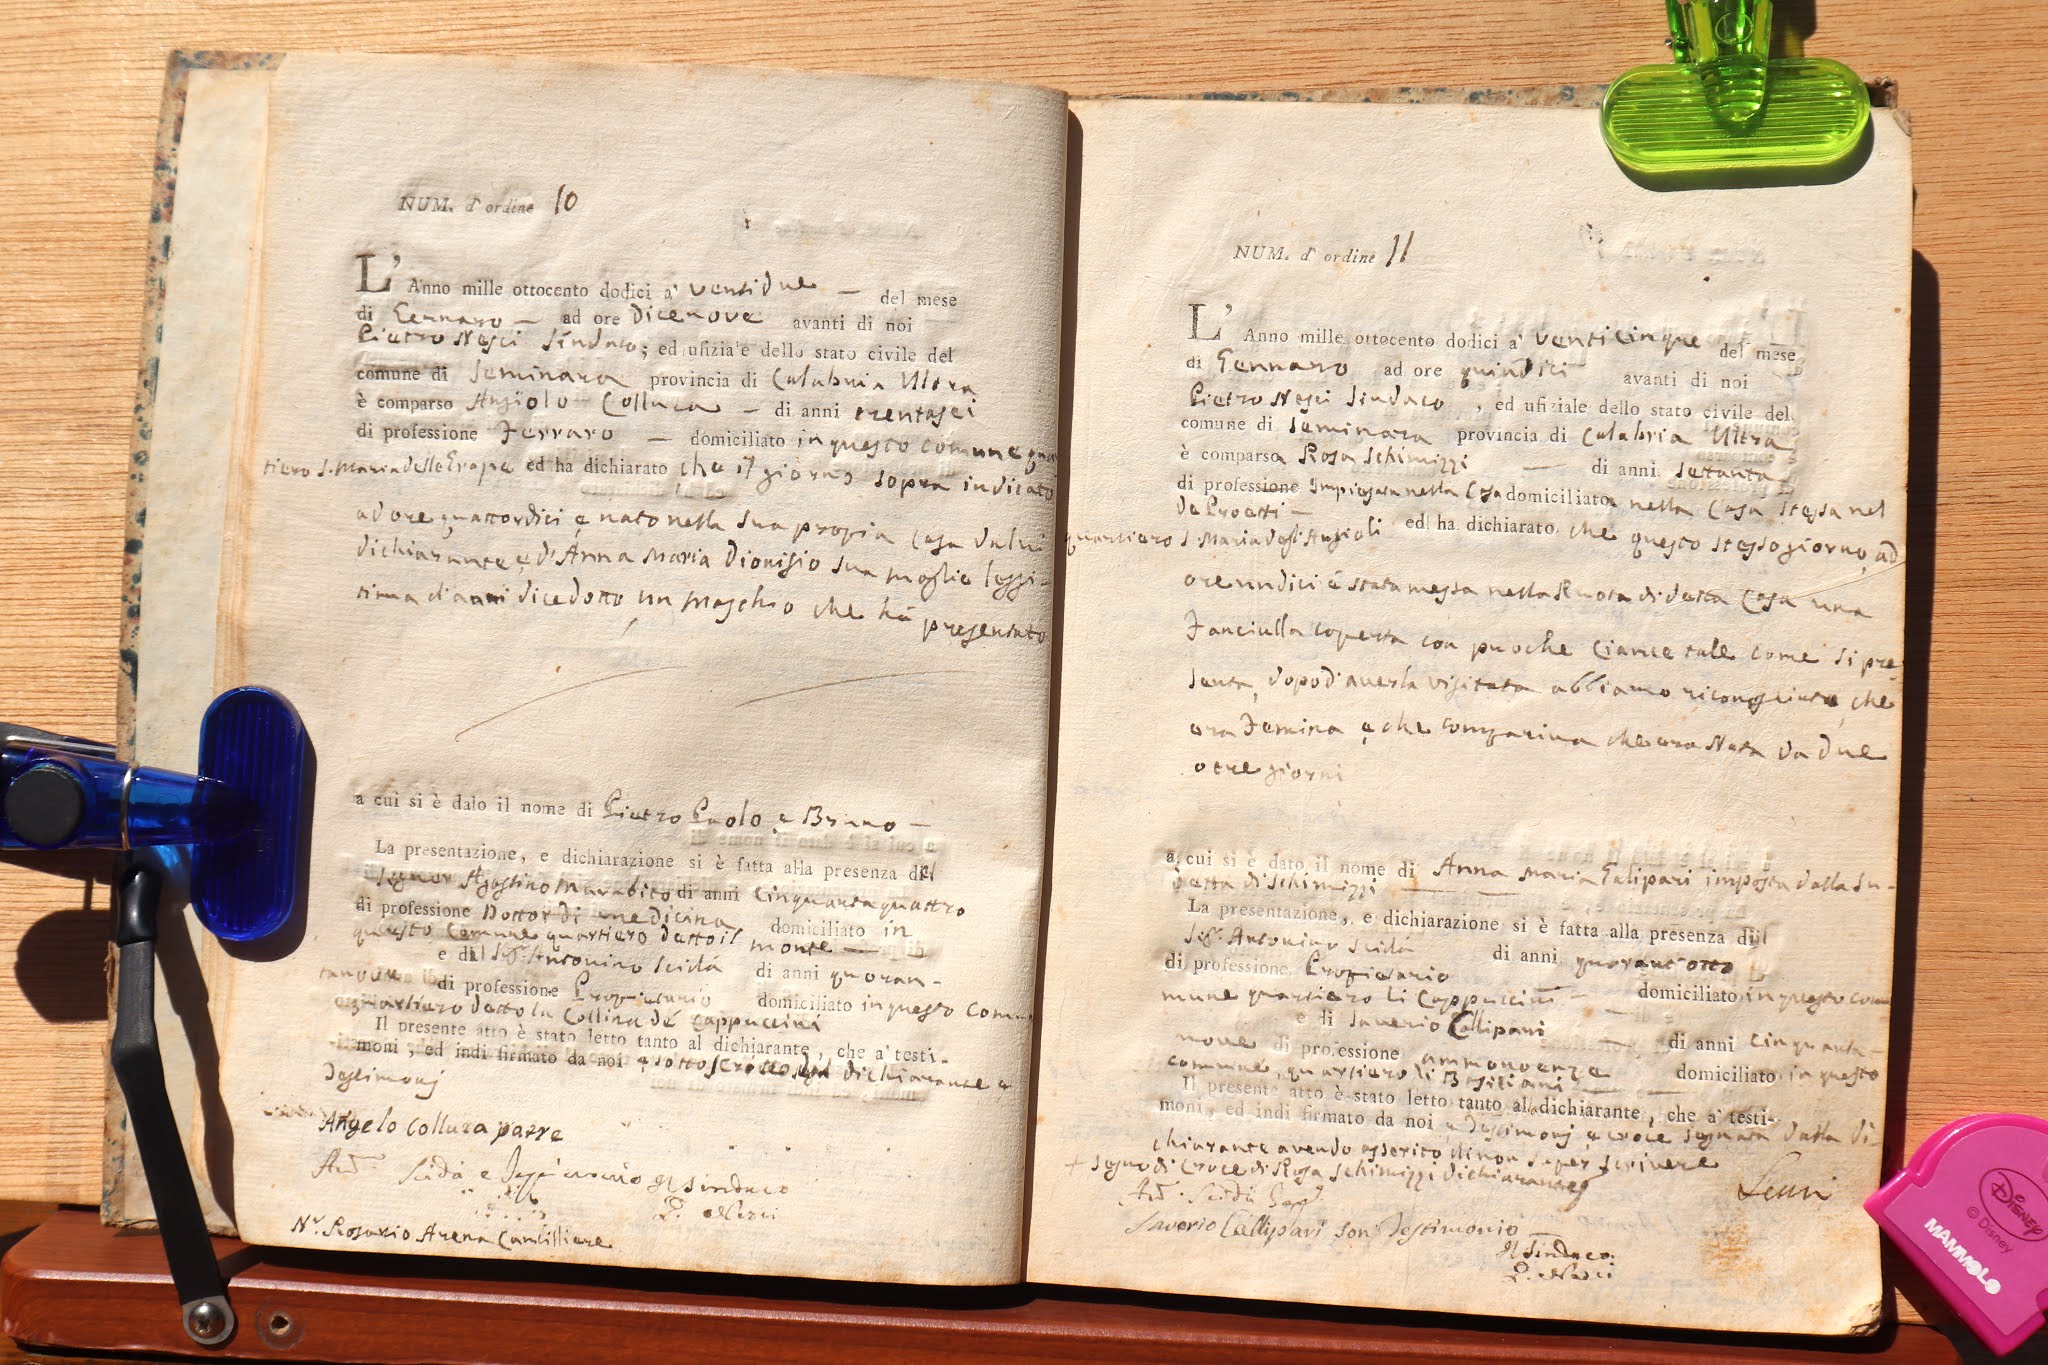 NUM. d' ordine 10
L' Anno mille ottocento dodici a' ventidue — del mese
di Gennaro — ad ore Dicenove avanti di noi
Pietro Nesci Sindaco; ed ufiziale dello stato civile del
comune di Seminara provincia di Calabria Ultra
è comparso Angiolo Collura — di anni trentasei
di professione Ferraro — domiciliato in questo comune quar
tiero S. Maria delle Grape ed ha dichiarato che il giorno sopra indicato
ad ore quattordici è nato nella sua propia casa da lui
dichiarante, e d'Anna Maria Dionisio sua moglie leggi-
tima d'anni dicedotto, un maschio che hà presentato
a cui si è dato il nome di Pietro Paolo, e Bruno —
La presentazione, e dichiarazione si è fatta alla presenza del
Signor Agostino Marabito di anni cinquantaquattro
di professione Dottor di medicina domiciliato in
questo comune quartiero detto il monte —
e del Sigr. Antonino Scidà di anni quaran-
di professione Propietario domiciliato in questo Comu
quartiero detto la Collina dè Cappuccini
Il presente atto è stato letto tanto al dichiarante, che a' testi-
moni, ed indi firmato da noi e sottoscritto dal dichiarante e
Testimonj
Angelo Collura patre
Antº. Scidà e Testimonio Il Sindaco
P. Nesci
Nr. Rosario Arena Cancilliere
NUM. d' ordine 11
L' Anno mille ottocento dodici a' venticinque del mese
di Gennaro ad ore quindici avanti di noi
Pietro Nesci Sindaco, ed ufiziale dello stato civile del
comune di Seminara provincia di Calabria Ultra
è comparsa Rosa Schimizzi — di anni settanta
di professione Impiegata nella Casa domiciliata nella Casa stessa nel
de Proetti —
quartiero S. Maria degl'Angioli ed ha dichiarato che questo stesso giorno, ad
ore undici è stata messa nella Ruota di detta Casa una
Fanciulla coperta con puoche ciance tale come si pre
senta, dopo d'averla visitata abbiamo riconosciuta, che
era Femina, e che compariva che era Nata da due
o tre giorni
a cui si è dato il nome di Anna Maria Galipari imposta dalla su-
detta di Schimizzi —
La presentazione, e dichiarazione si è fatta alla presenza di
Sigr. Antonino Scidà di anni quarant'otto
di professione Propietario domiciliato in questo com
mune quartiero li Cappuccini —
e di Saverio Callipari — di anni cinquanta
nove di professione domiciliato in questo
commune, quartiero li Basiliani
Il presente atto è stato letto tanto alla dichiarante, che a' testi-
moni, ed indi firmato da noi, e Testimonj e croce segnata dalla di-
chiarante avendo asserito di non saper scrivere
+ Segno di Croce di Rosa Schimizzi dichiarante
Antº. Scidà
Saverio Callipari son Testimonio
Il Sindaco
P. Nesci
Disney
© Disney
MAMMOLO